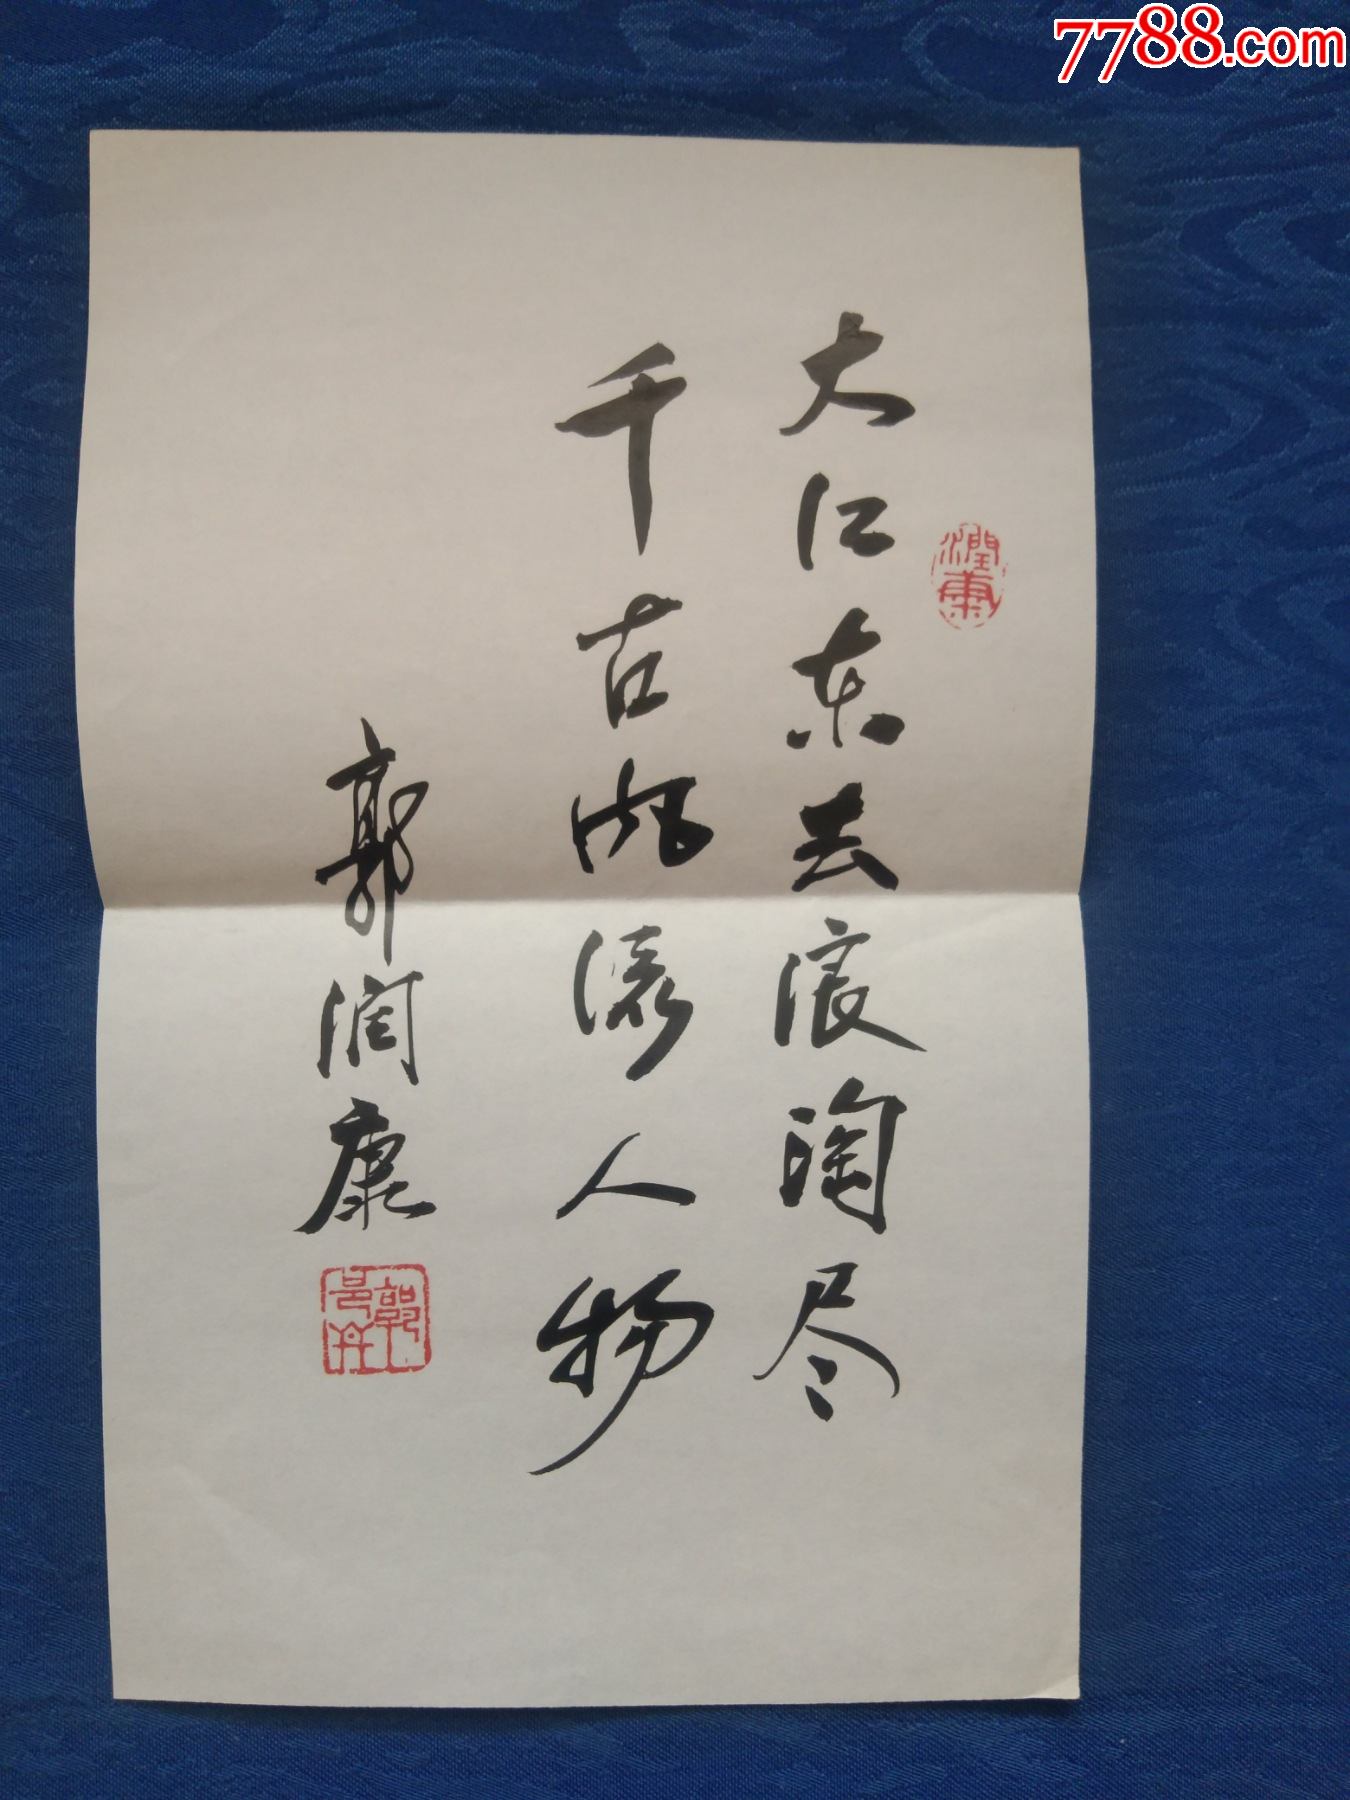 7788.com
大江东去浪淘尽
潤康
千古风流人物
郭润康